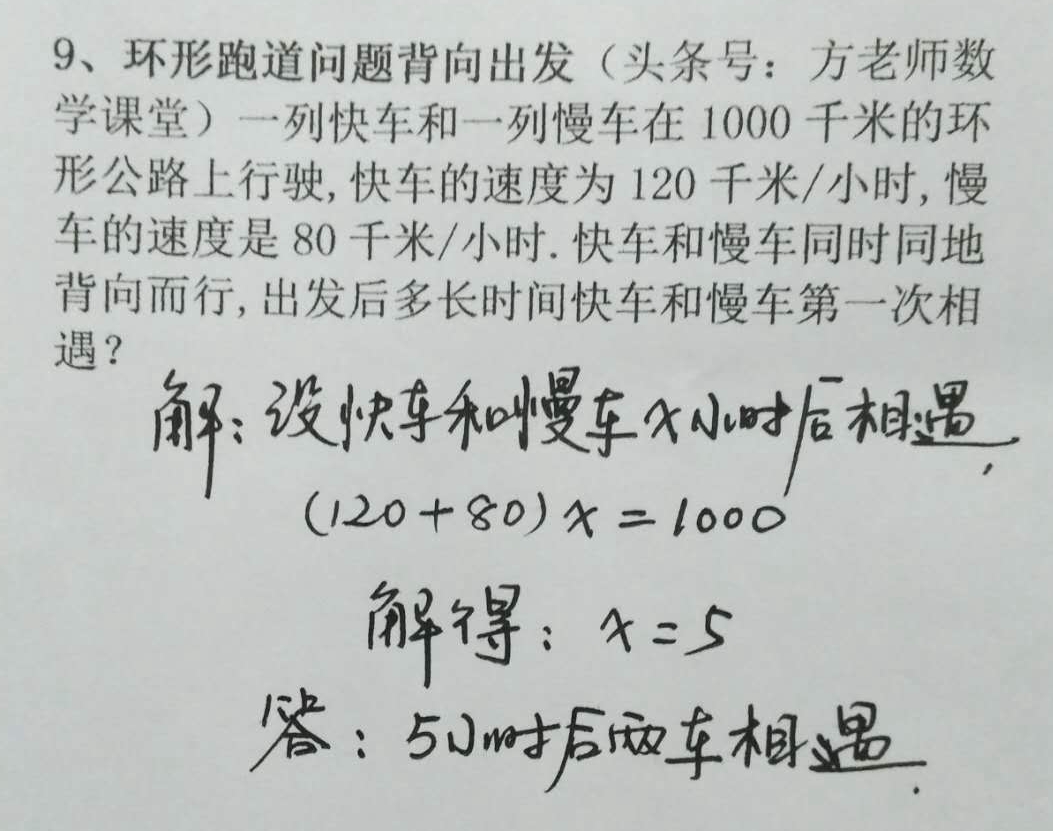 9、环形跑道问题背向出发（头条号：方老师数
学课堂）一列快车和一列慢车在 1000 千米的环
形公路上行驶,快车的速度为 120 千米/小时,慢
车的速度是 80 千米/小时.快车和慢车同时同地
背向而行,出发后多长时间快车和慢车第一次相
遇?
解:设快车和慢车x小时后相遇,
(120+80)x=1000
解得:x=5
答:5小时后两车相遇.